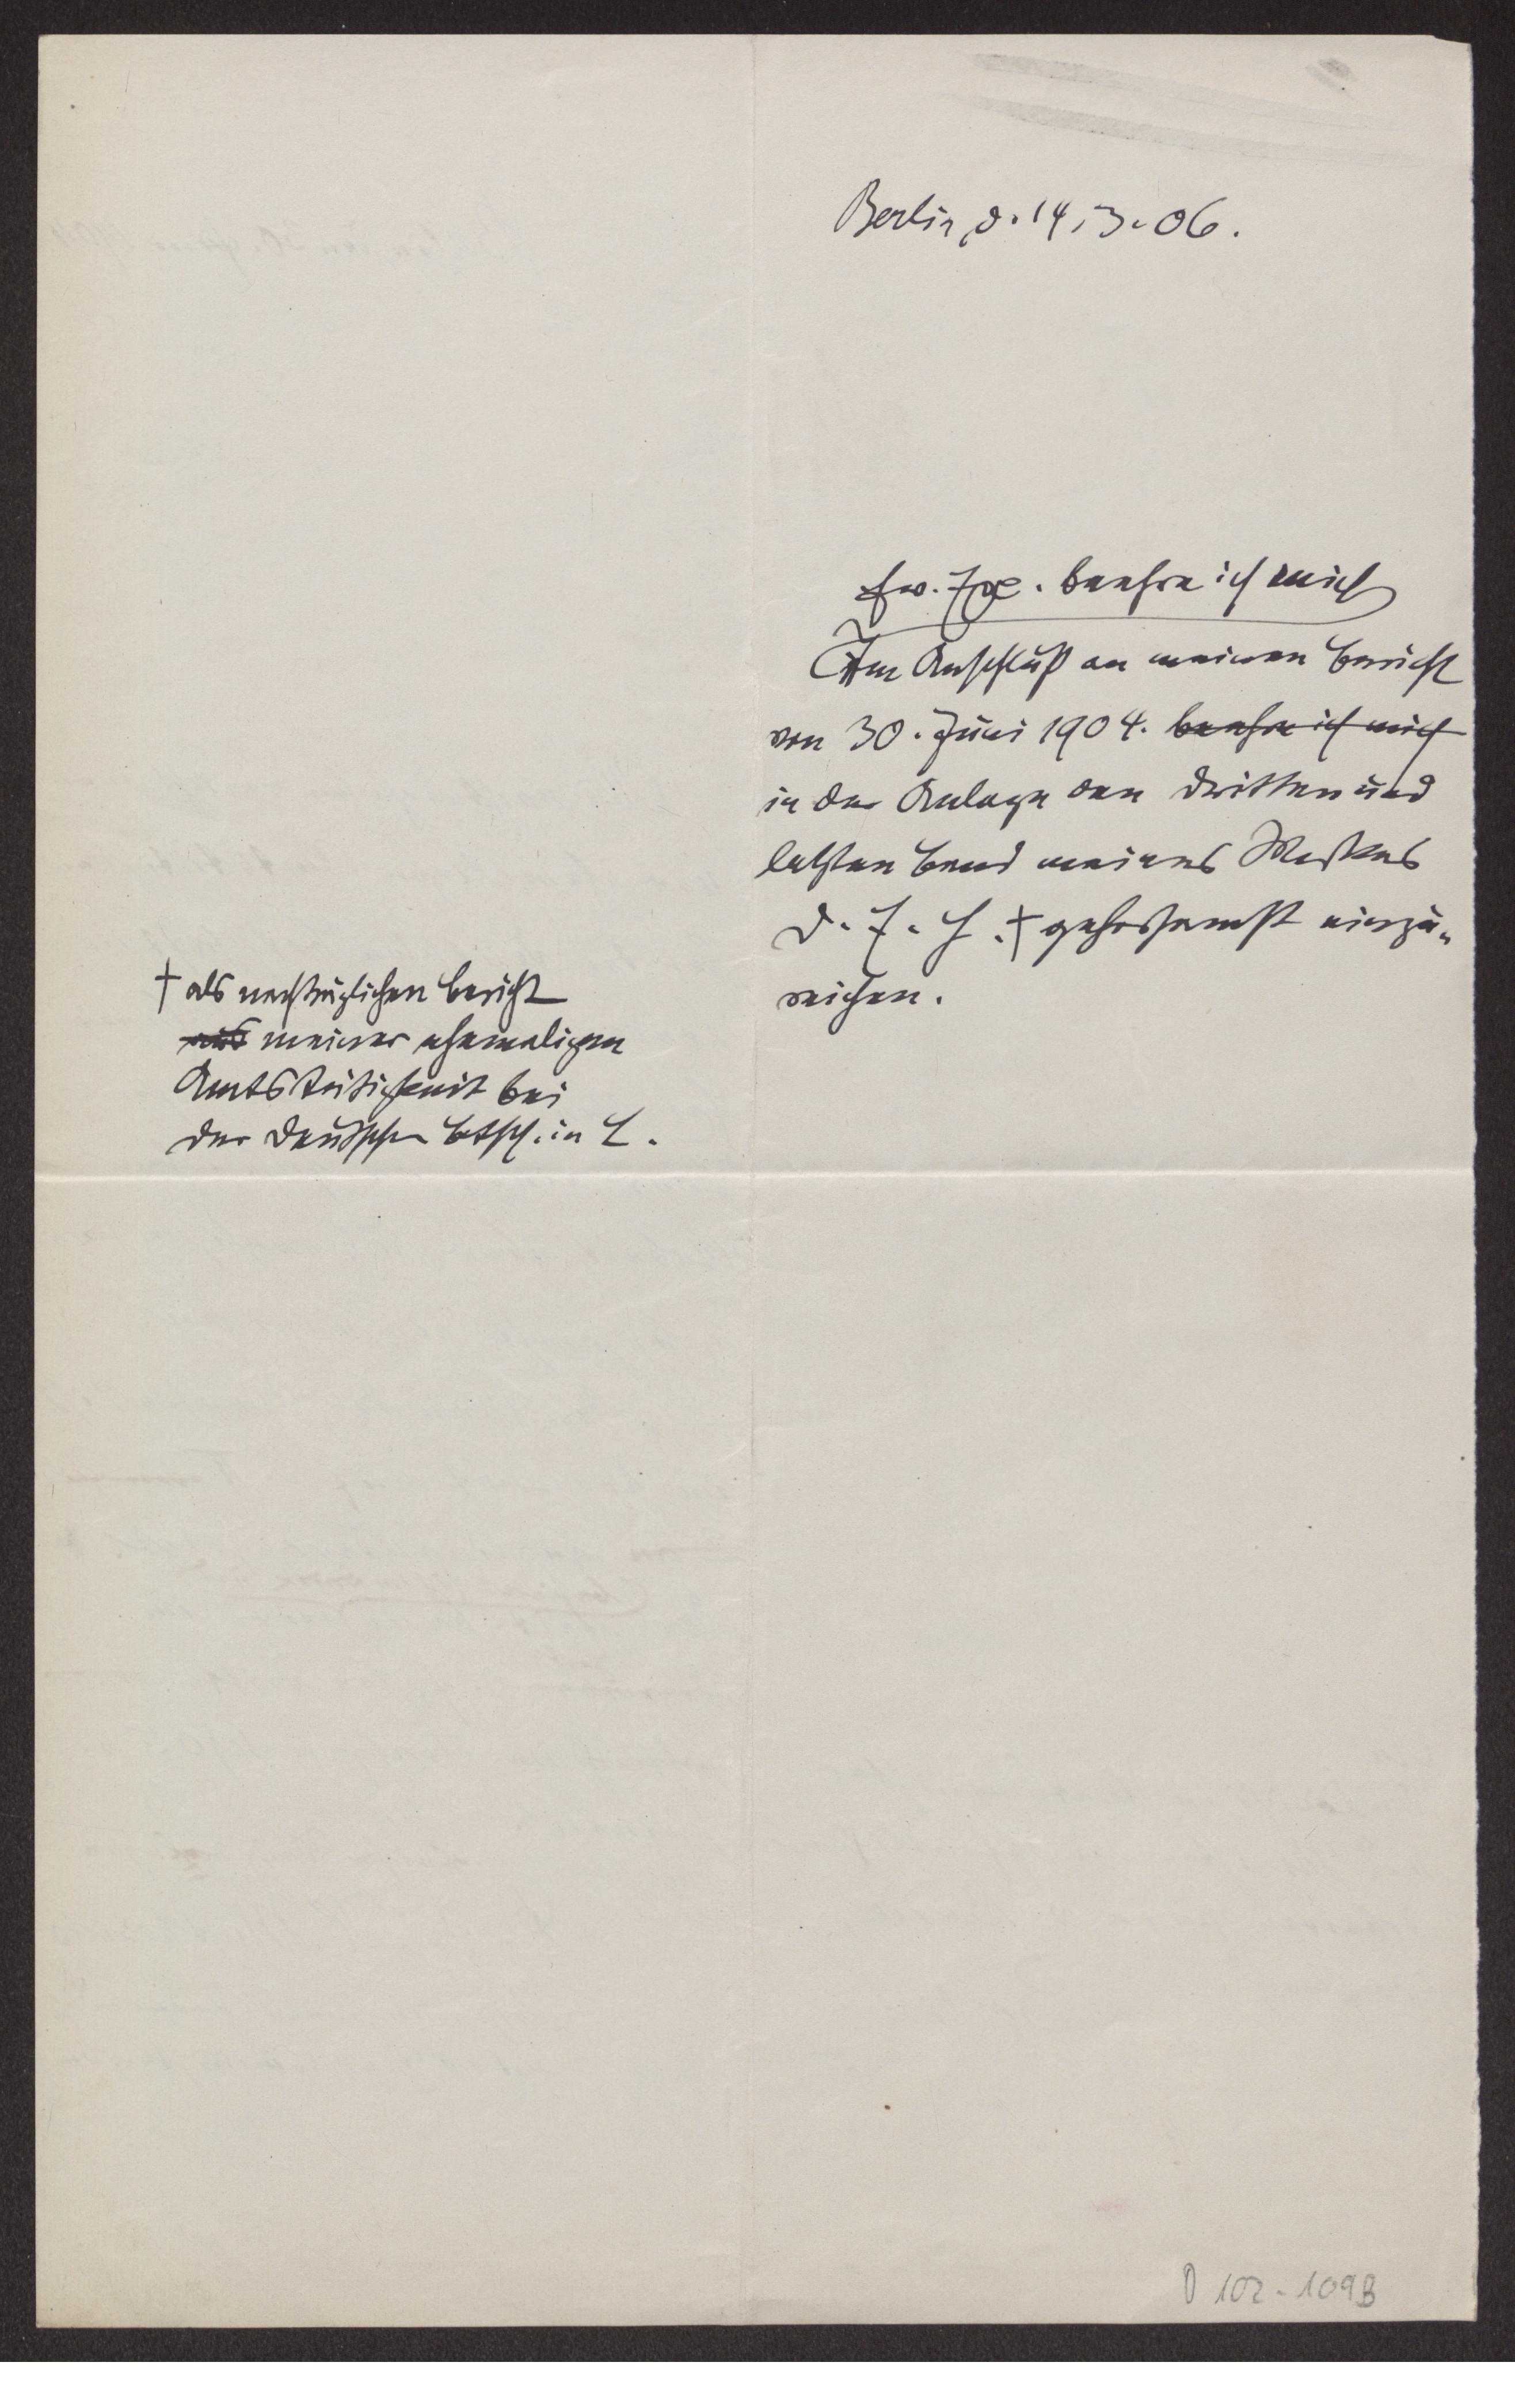 Berlin, d. 14.3.06.
Ew. Exc. beehre ich mich
Im Anschluß an meinen Bericht
von 30. Juni 1904. beehre ich mich
in der Anlage den dritten und
letzten Band meines Werkes
D. E. H. † gehorsamst einzu-
reichen.
† als nachträglichen Bericht
aus meiner ehemaligen
Amtstätigkeit bei
der Deutschen Botsch. in L.
D 102-109B